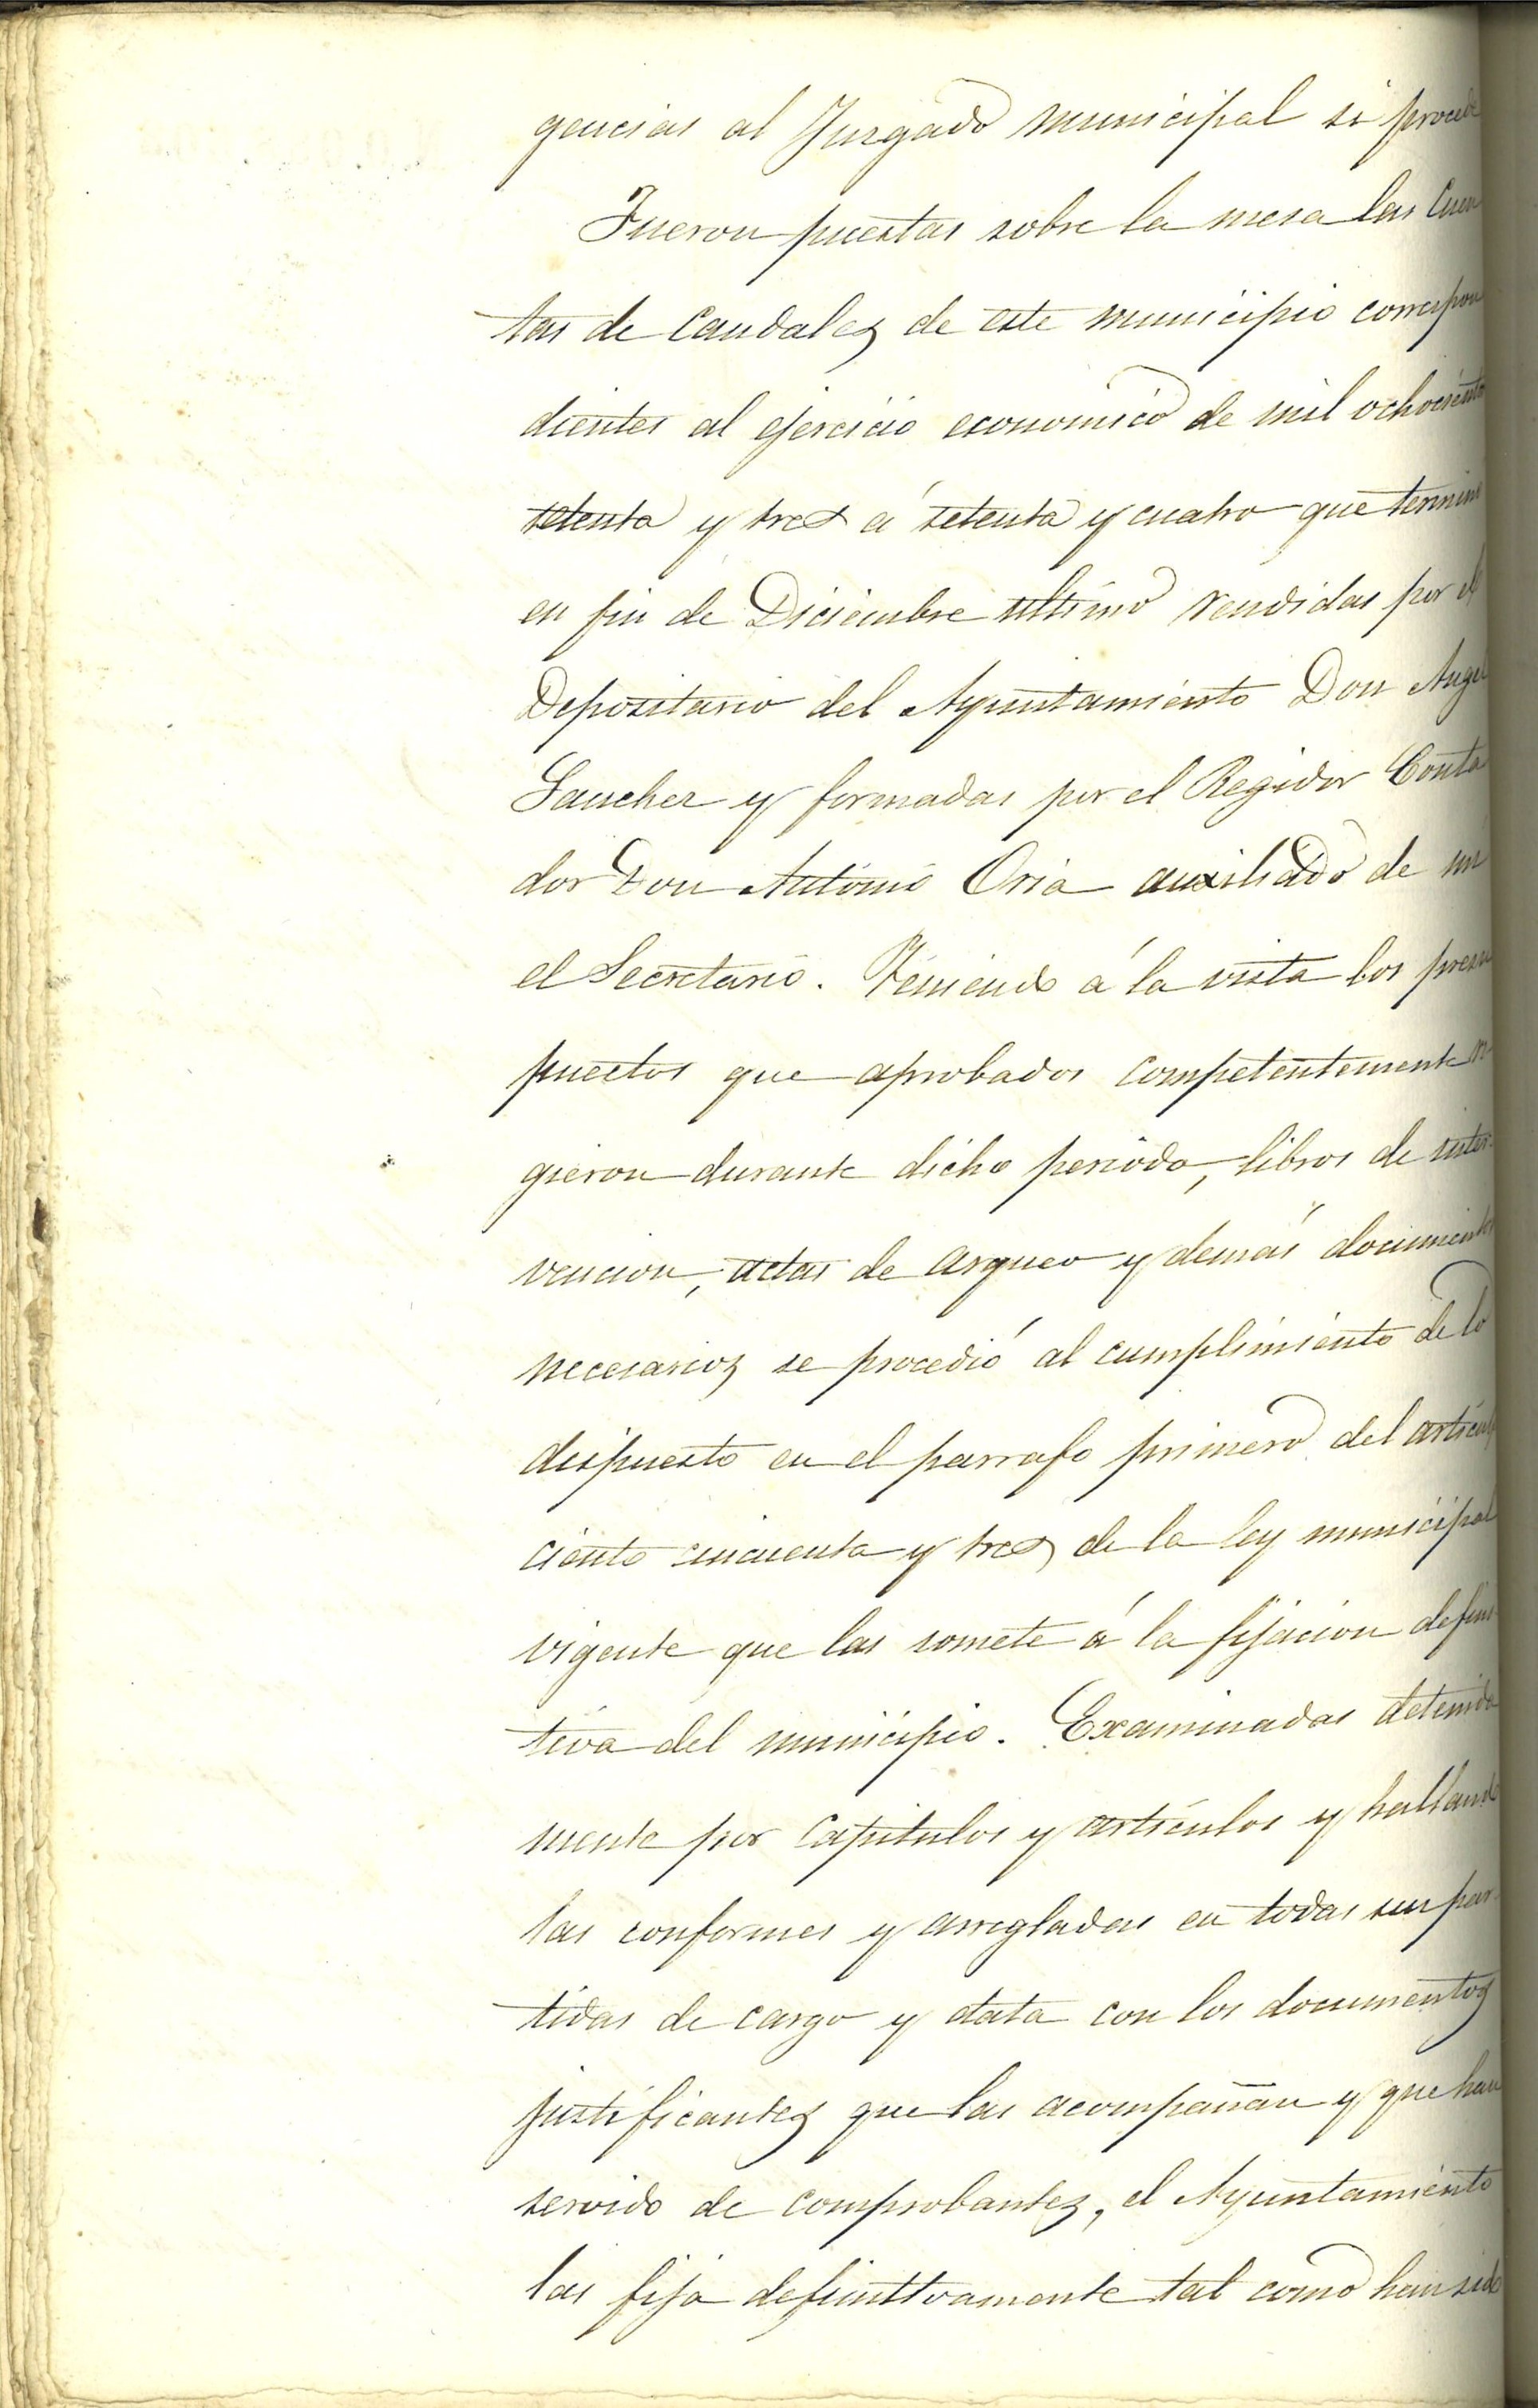 gencias al Juzgado municipal si procede
Fueron puestas sobre la mesa las Cuen
tas de Caudales de este municipio correspon
dientes al ejercicio economico de mil ochocientos
setenta y tres á setenta y cuatro que termino
en fin de Diciembre ultimo rendidas por el
Depositario del Ayuntamiento Don Angel
Sanchez y formadas por el Regidor Conta
dor Don Antonio Oria auxiliado de mi
el Secretario. Teniendo á la vista los presu
puestos que aprobados competentemente ri-
gieron durante dicho periodo, libros de inter-
vencion, actas de arqueo y demás documentos
necesarios se procedió al cumplimiento de lo
dispuesto en el parrafo primero del articulo
ciento cincuenta y tres de la ley municipal
vigente que las somete á la fijacion defini-
tiva del municipio. Examinadas detenida
mente por capitulos y articulos y hallando
las conformes y arregladas en todas sus par-
tidas de cargo y data con los documentos
justificantes que las acompañan y que han
servido de comprobantes, el Ayuntamiento
las fija definitivamente tal como han sido